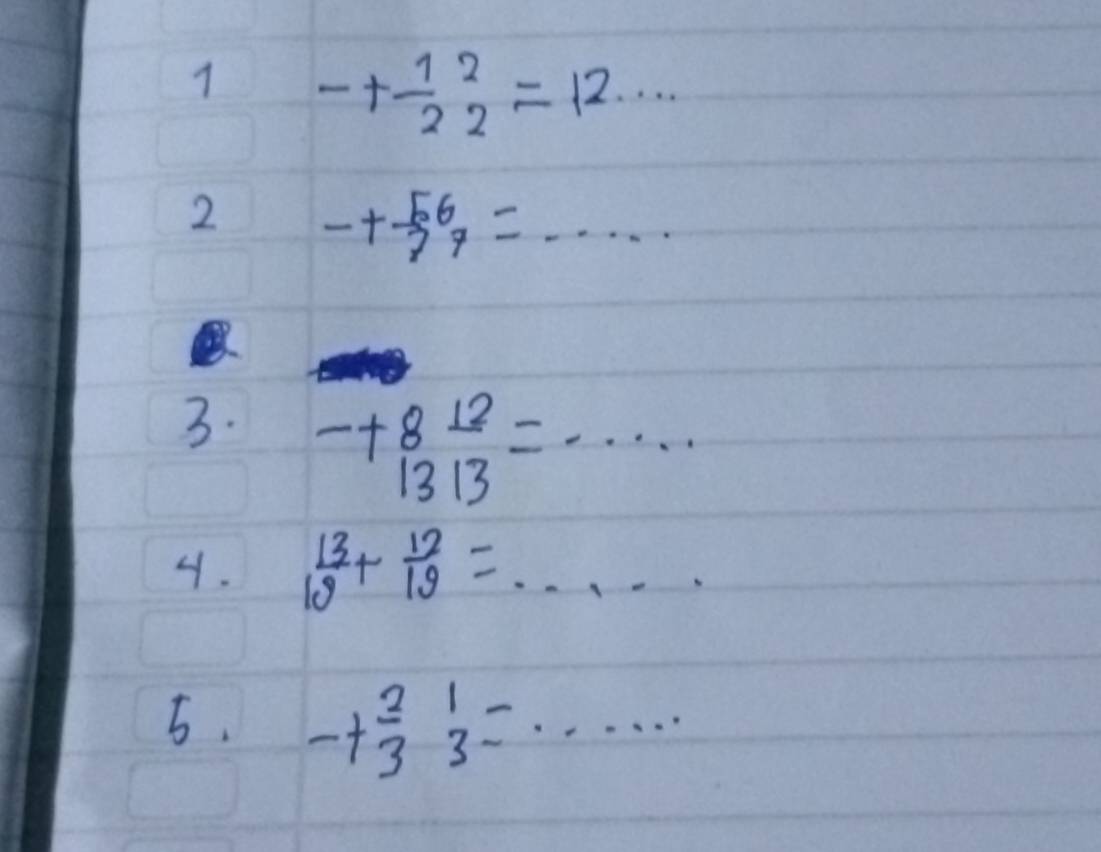 1 -+ 1/2 2/2 = 12....
2 -+ 5/7 6/7 = ......
3. -+ 8/13 12/13 = ......
4. 13/19 + 12/19 = ......
5. -+ 2/3 1/3 = .......